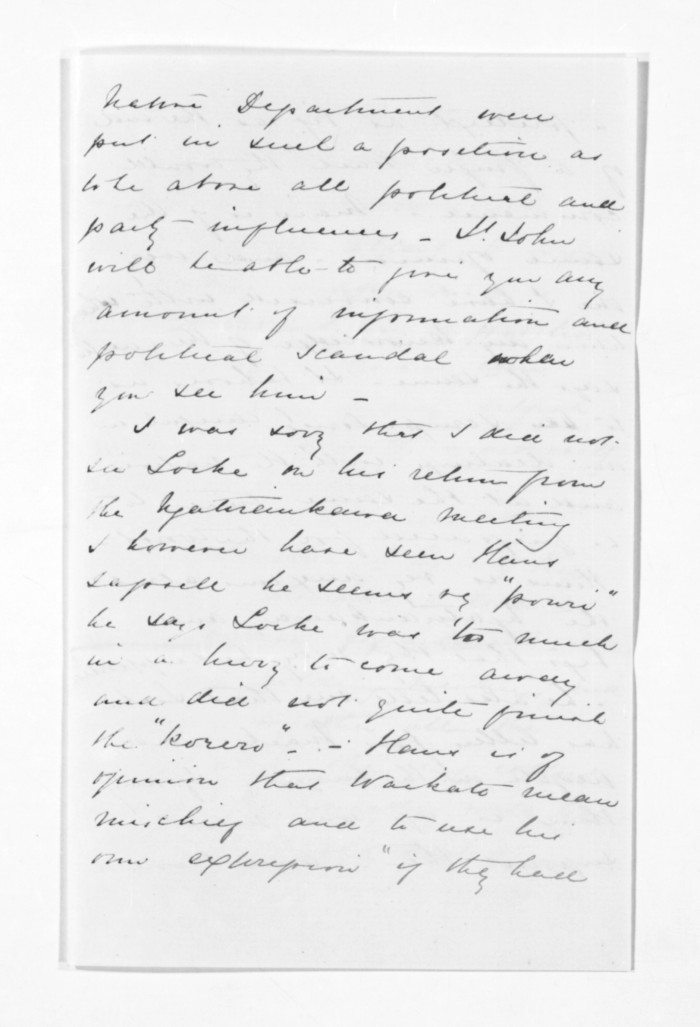 Native Department were
put in such a position as
to be above all political and
party influences - St. John
will be able to give you any
amount of information and
political scandal when
you see him -
I was sorry that I did not
see Locke on his return from
the meeting
I however have seen Hans
Tapsell he seems vy "pouri"
he says Locke was too much
in a hurry to come away
and did not quite finish
the "korero" - - Hans is of
opinion that Waikato mean
mischief and to use his
own expression "if they had